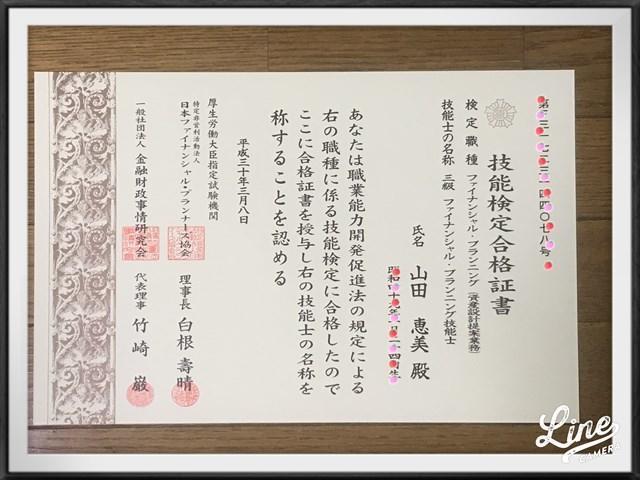 技能検定合格証書
検定職種 ファイナンシャル・プランニング(資産設計提案業務)
技能士の名称 三級 ファイナンシャル・プランニング技能士
氏名 山田 恵美 殿
あなたは職業能力開発促進法の規定による
右の職種に係る技能検定に合格したので
ここに合格証書を授与し右の技能士の名称を
称することを認める
平成三十年三月八日
厚生労働大臣指定試験機関
特定非営利活動法人
日本ファイナンシャル・プランナーズ協会 理事長 白根 壽晴
一般社団法人 金融財政事情研究会 代表理事 竹崎 巌
Line
CAMERA